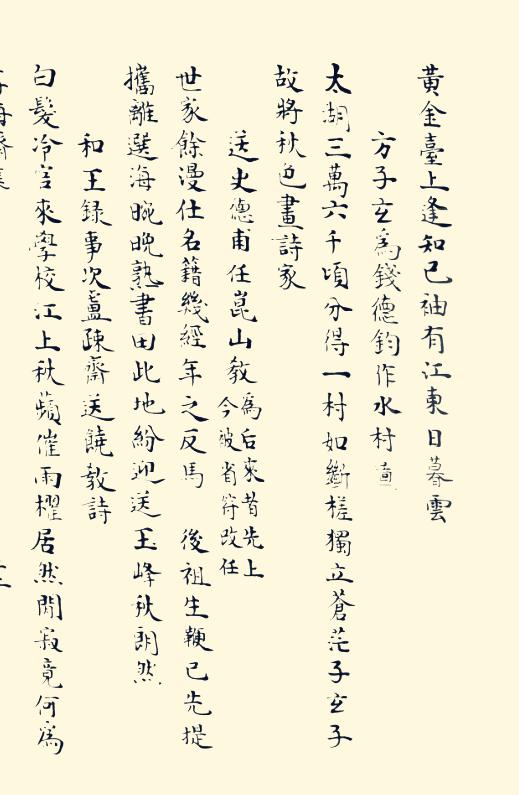 黃金臺上逢知己袖有江東日暮雲
方子玄爲錢德鈞作水村
太湖三萬六千頃分得一村如斷槎獨立蒼茫子玄子
故將秋色畫詩家
送史德甫任崑山教
爲后來者先上
今被省符改任
世家餘漫仕名籍幾經年之反馬 後祖生鞭已先提
攜離選海晼晚熟書田此地紛迎送玉峰秋朗然
和王錄事次盧疎齋送饒教詩
白髮冷官來學校江上秋蘋催雨櫂居然閒寂竟何爲